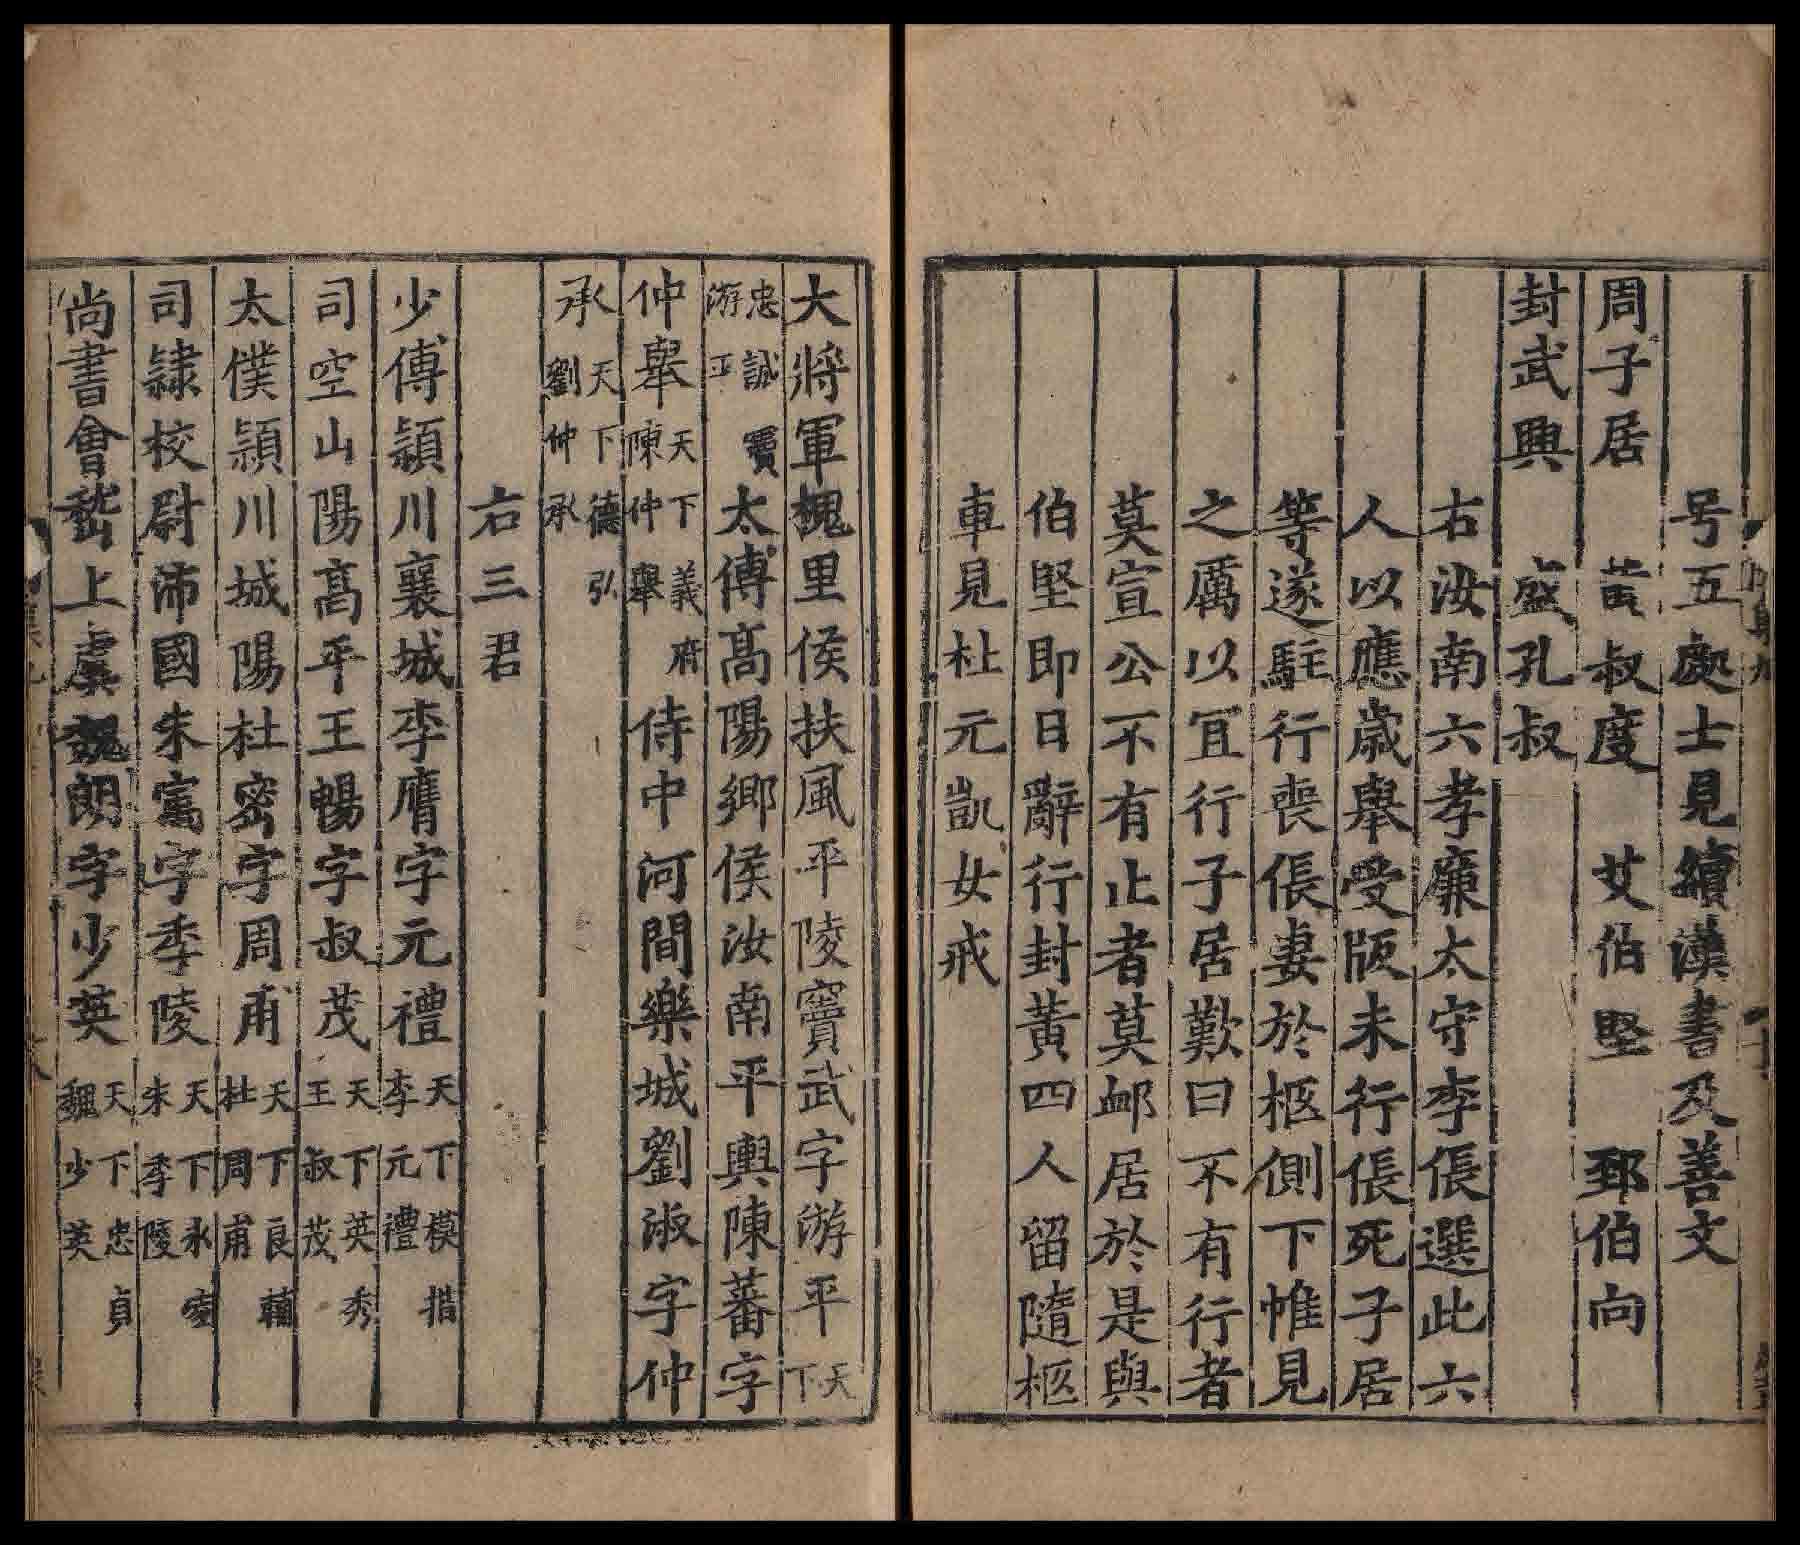 号五處士見續漢書及善文
周子居　黃叔度　艾伯堅　郅伯向
封武興　盛孔叔
右汝南六孝廉太守李倀選此六
人以應歲舉受版未行倀死子居
等遂駐行喪倀妻於柩側下帷見
之厲以宜行子居歎曰不有行者
莫宣公不有止者莫卹居於是與
伯堅即日辭行封黃四人留隨柩
車見杜元凱女戒
大將軍槐里侯扶風平陵竇武字游平天下
忠誠竇游平　太傅高陽鄉侯汝南平輿陳蕃字
仲舉天下義府陳仲舉　侍中河間樂城劉淑字仲
承天下德弘劉仲承
右三君
少傅潁川襄城李膺字元禮天下模楷李元禮
司空山陽高平王暢字叔茂天下英秀王叔茂
太僕潁川城陽杜密字周甫天下良輔杜周甫
司隸校尉沛國朱寓字季陵天下冰凌朱季陵
尚書會嵇上虞魏朗字少英天下忠貞魏少英